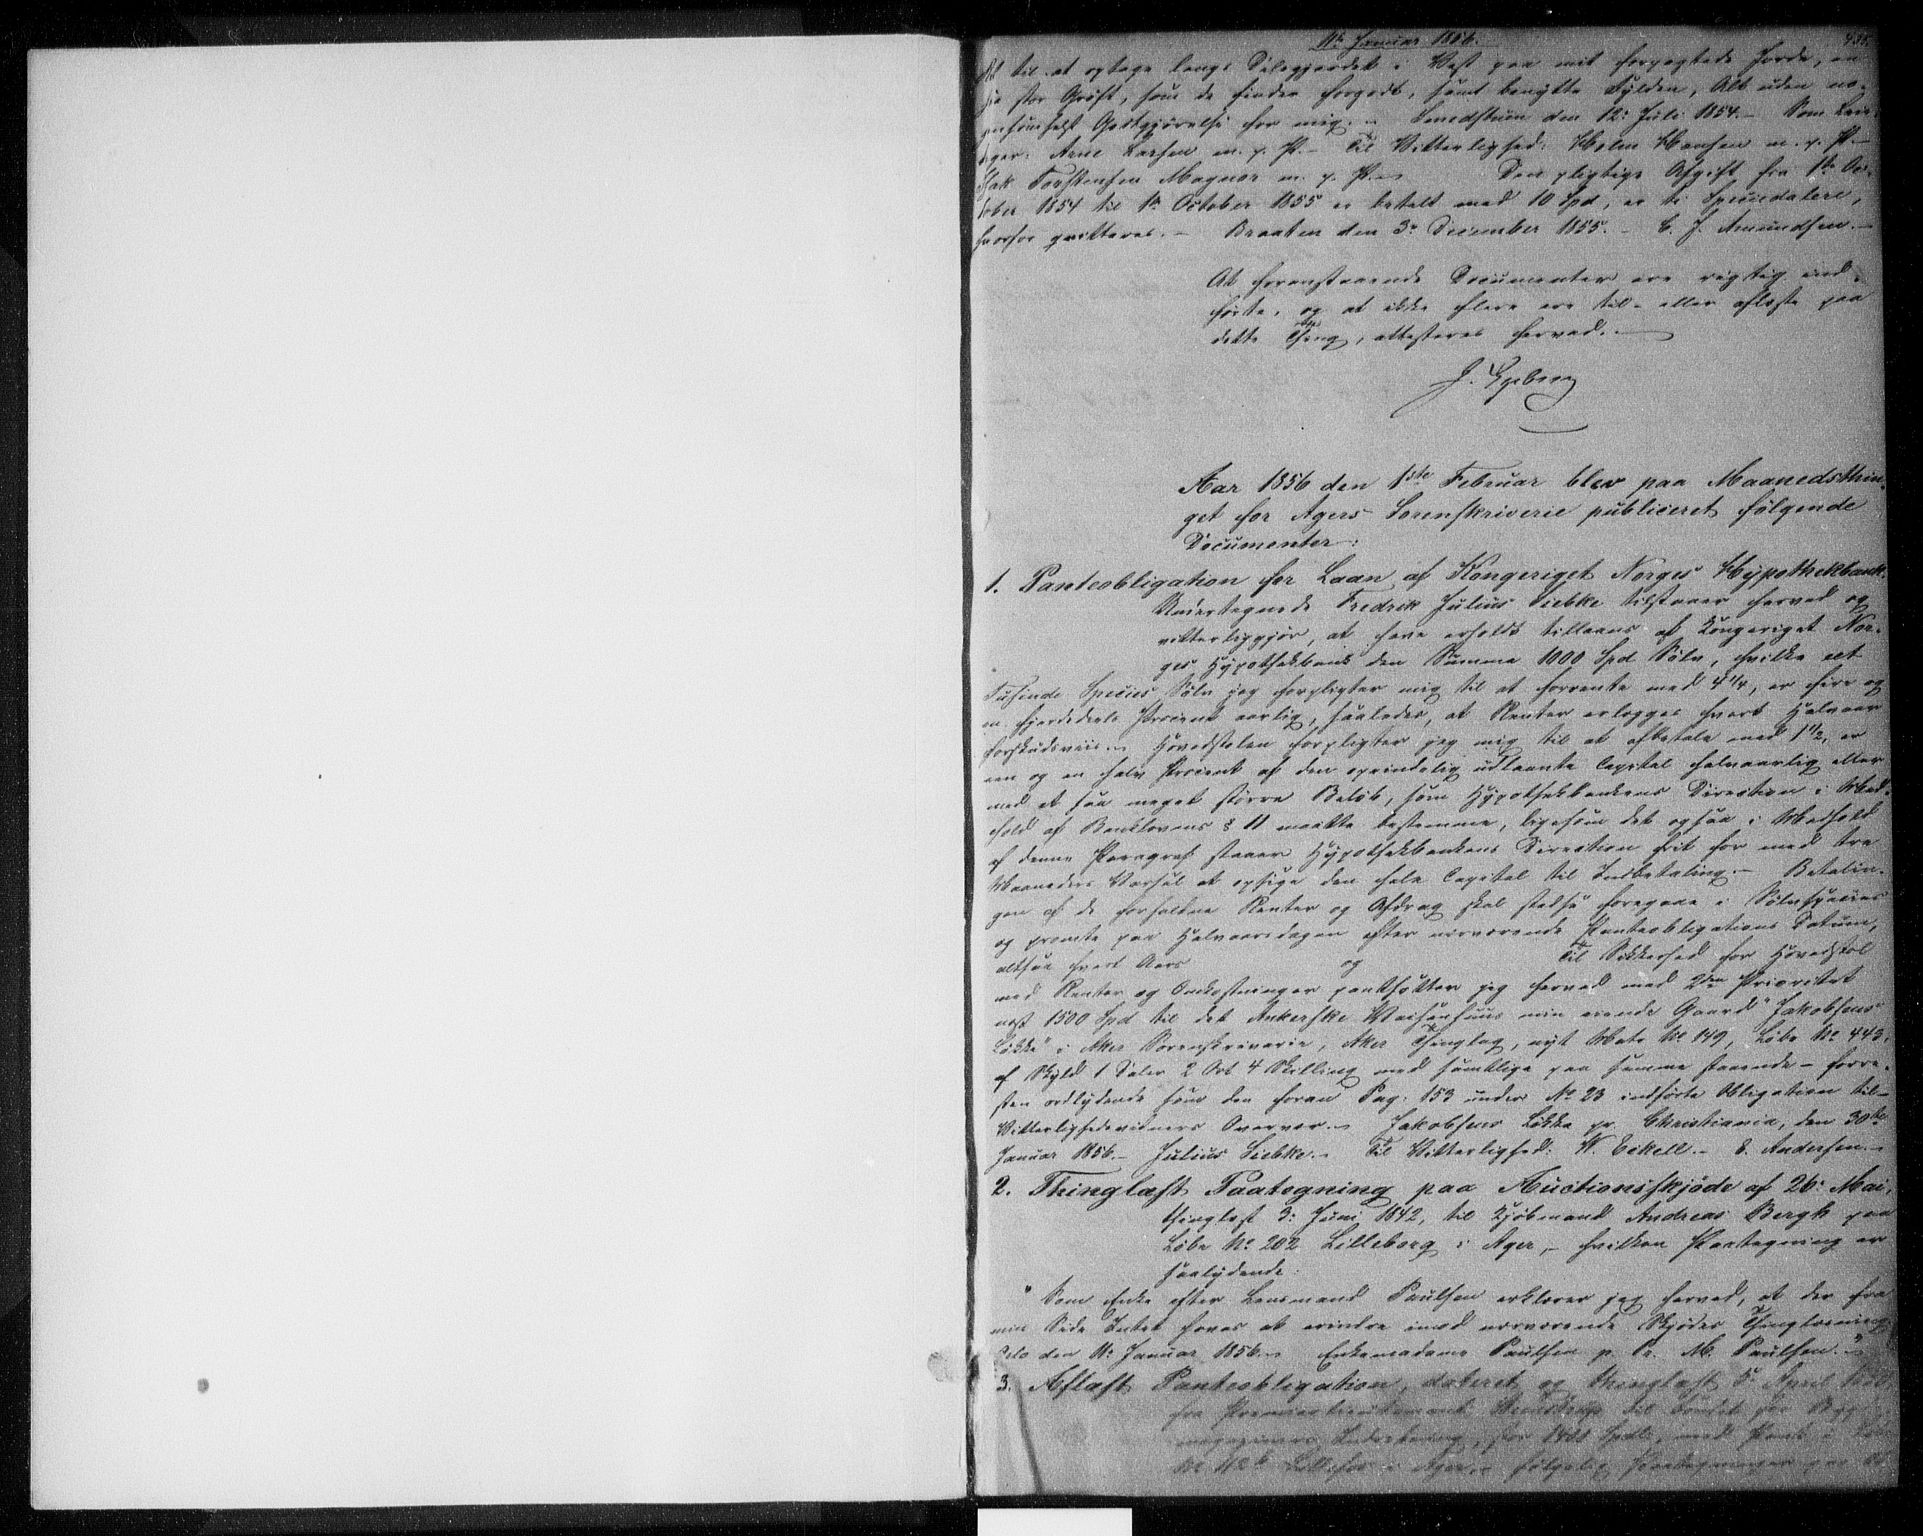 11te Januar 1856. 435.
til at optage langs Delegjerdet i Vest paa mit forpagtede Jorde, en
stor Grøft, som de finder forgodt, samt benytte Fylden, Alt uden no-
gensomhelst Godtgjørelse for mig. Smedstuen den 12: Juli 1854. – Som
Arne Larsen m. p. P. – Til Vitterlighed: Holm Hansen m. p. P. –
Isak Torstensen Magnor m. p. P. – Den pligtige Afgift fra 1ste Oc-
tober 1854 til 1ste October 1855 er betalt med 10 Spd, er ti Speciedalere,
hvorfor qvitteres. – Braaten den 3die December 1855. – C. J. Amundsen. –
At foranstaaende Documenter ere rigtig ind-
førte, og at ikke flere ere til- eller aflæste paa
dette Thing, attesteres herved.
J. Egeberg
Aar 1856 den 1ste Februar blev paa Maanedsthin-
get for Agers Sorenskriverie publiceret følgende
Documenter:
1. Panteobligation for Laan af Kongeriget Norges Hypothekbank.
Undertegnede Fredrik Julius Siebke tilstaaer herved og
vitterliggjør, at have erholdt tillaans af Kongeriget Nor-
ges Hypothekbank den Summa 1000 Spd Sølv, hvilke eet
Tusinde Species Sølv jeg forpligter mig til at forrente med 4 1/4, er fire og
en fjerdedeels Procent aarlig, saaledes, at Renter erlægges hvert Halvaar
forskudsviis. Hovedstolen forpligter jeg mig til at afbetale med 1 1/2, er
een og en halv Procent af den oprindelig udlaante Capital halvaarlig eller
med et saa meget større Beløb, som Hypothekbankens Direction i Med-
hold af Banklovens § 11 maatte bestemme, ligesom det ogsaa i Medhold
af denne Paragraf staaer Hypothekbankens Direction frit for med tre
Maaneders Varsel at opsige den hele Capital til Indbetaling. – Betalin-
gen af de forfaldne Renter og Afdrag skal stedse foregaae i Sølvspecies
og promte paa Halvaarsdagen efter nærværende Panteobligations Datum,
altsaa hvert Aars og Til Sikkerhed for Hovedstol
med Renter og Omkostninger pantsætter jeg herved med 2den Prioritet
næst 1500 Spd til det Ankerske Waisenhuus min eiende Gaard "Jakobsens
Løkke" i Aker Sorenskriverie, Aker Thinglag, nyt Matr. No 149, Løbe No 443,
af Skyld 1 Daler 2 Ort 4 Skilling med samtlige paa samme staaende – forre-
sten ordlydende som den foran Pag. 153 under No 23 indførte Obligation til –
Vitterlighedsvidners Overvær. – Jakobsens Løkke pr. Christiania, den 30te
Januar 1856. – Julius Siebke. – Til Vitterlighed: W. Eckell. – E. Andersen. –
2. Thinglæst Paategning paa Auctionsskjøde af 26: Mai,
thinglæst 3: Juni 1842, til Kjøbmand Andreas Bergh paa
Løbe No 202 Lilleborg i Ager, – hvilken Paategning er
saalydende:
" Som Enke efter Lensmand Paulsen erklærer jeg herved, at der fra
min Side Intet haves at erindre imod nærværende Skjødes Thinglæsning.
Oslo den 11: Januar 1856. – Enkemadame Paulsen p. Pr. M. Paulsen."
3. Aflæst Panteobligation, dateret og thinglæst 5: April
fra Premierlieutenant til
for 1400 Spdlr, med Pant i
No 112 b i Ager. – følgelig Paategninger